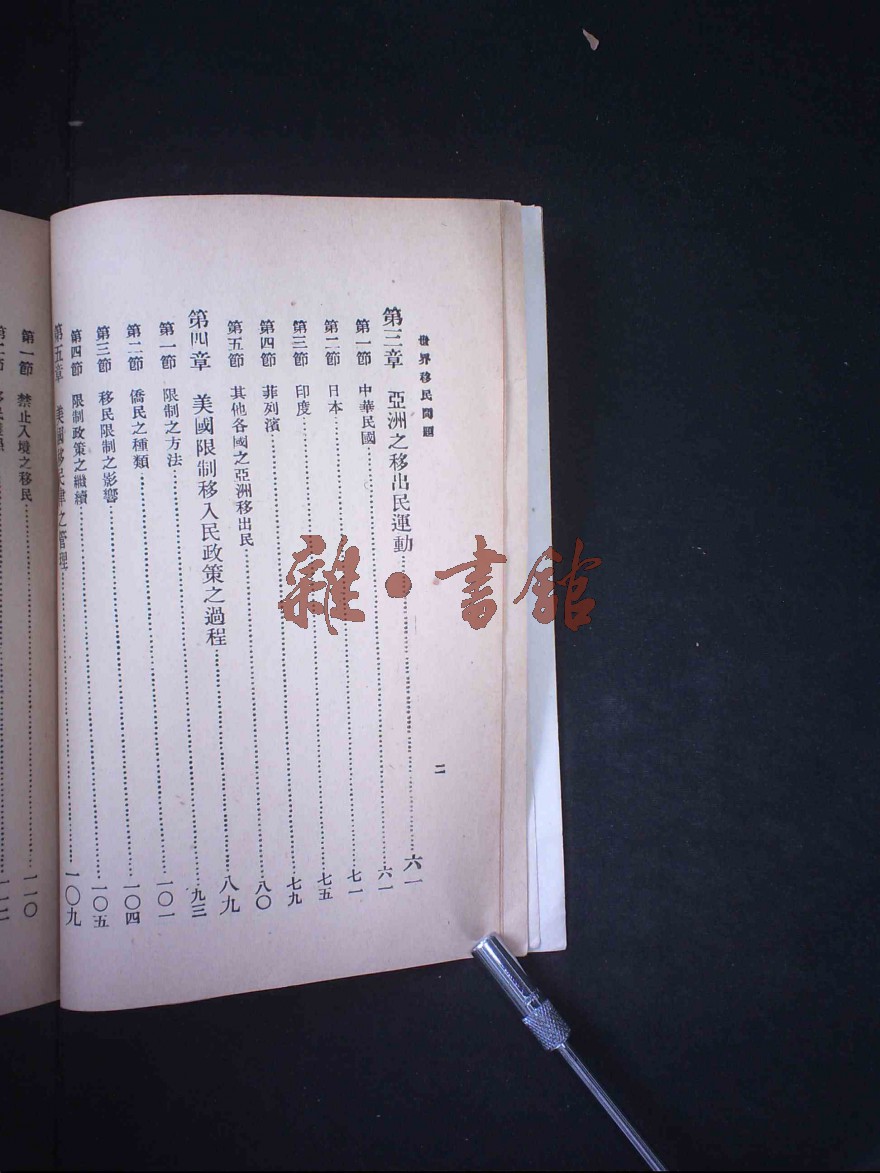 世界移民問題
二
第三章 亞洲之移出民運動……六一
第一節 中華民國……六一
第二節 日本……七一
第三節 印度……七五
第四節 菲列濱……七九
第五節 其他各國之亞洲移出民……八〇
第四章 美國限制移入民政策之過程……八九
第一節 限制之方法……九三
第二節 僑民之種類……一〇一
第三節 移民限制之影響……一〇四
第四節 限制政策之繼續……一〇五
第五章 美國移民律之管理……一〇九
第一節 禁止入境之移民……一一〇
雜·書館